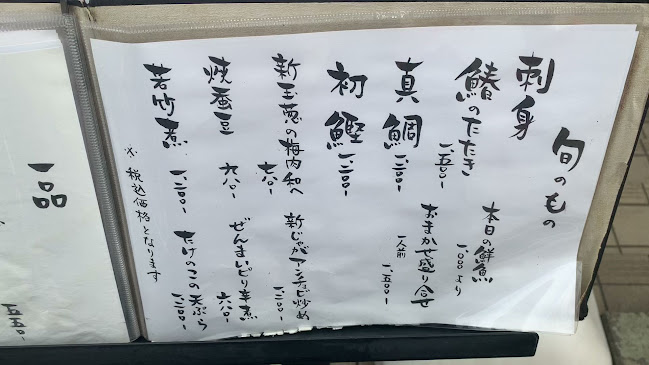 旬のもの
刺身
本日の鮮魚
一、〇〇〇より
鰆のたたき
一、五〇〇-
おまかせ盛り合せ
一人前
一、五〇〇-
真鯛 一、二〇〇-
初鰹 一、二〇〇-
新玉葱の梅肉和へ
新じゃがアンチョビ炒め
一、二〇〇-
焼蚕豆 六八〇-
ぜんまいピリ辛煮
六八〇-
若竹煮 一、二〇〇-
たけのこの天ぷら
一、二〇〇-
※税込価格となります
一品